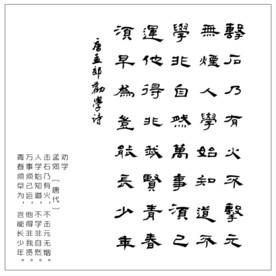 擊石乃有火不擊元
無煙人學始知道不
學非自然萬事須己
運他得非我賢青春
須早為豈能長少年
唐孟郊勸學詩
劝学
孟郊 [唐代]
击石乃有火，不击元无烟。
人学始知道，不学非自然。
万事须己运，他得非我贤。
青春须早为，岂能长少年。